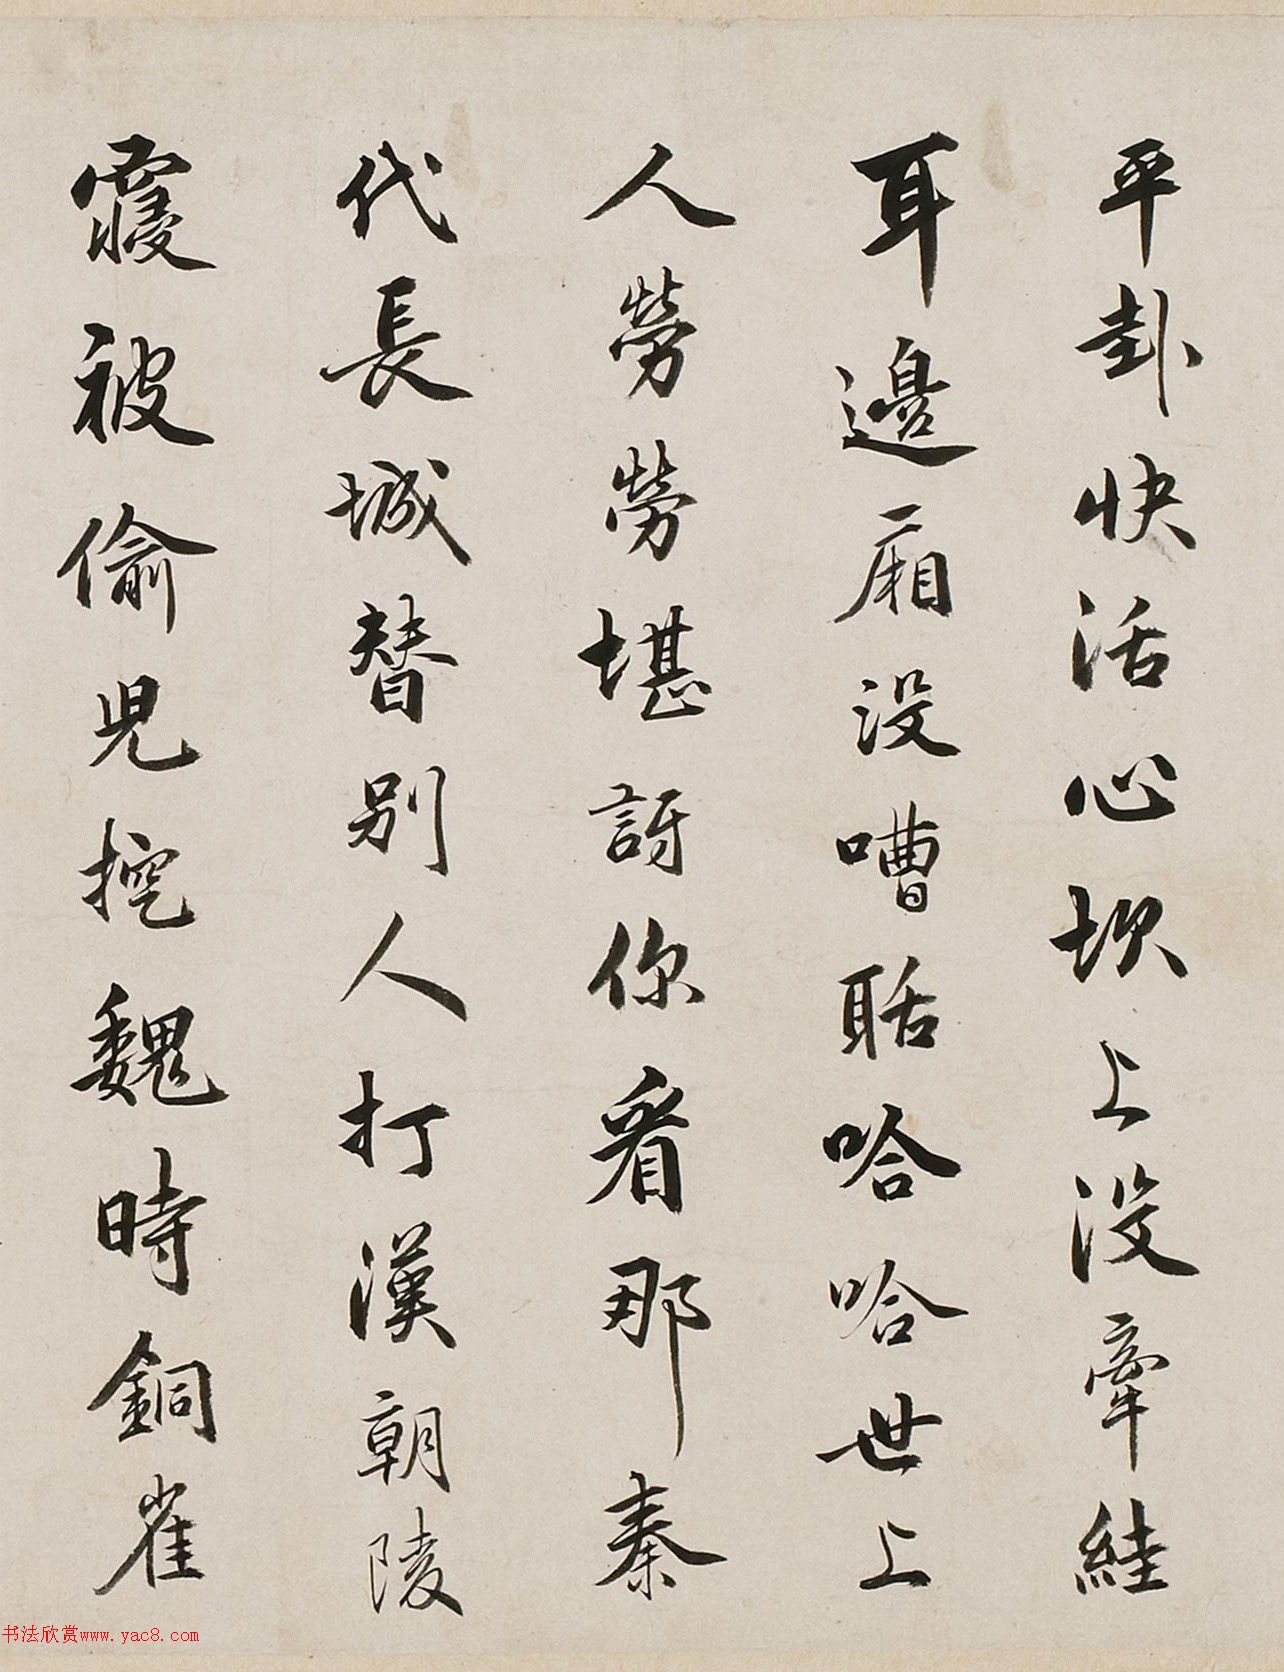 平卦快活心坎上没牽絓
耳邊廂没嘈聒哈哈世上
人勞勞堪訝你看那秦
代長城替別人打漢朝陵
寢被偷兒挖魏時銅雀
书法欣赏www.yac8.com